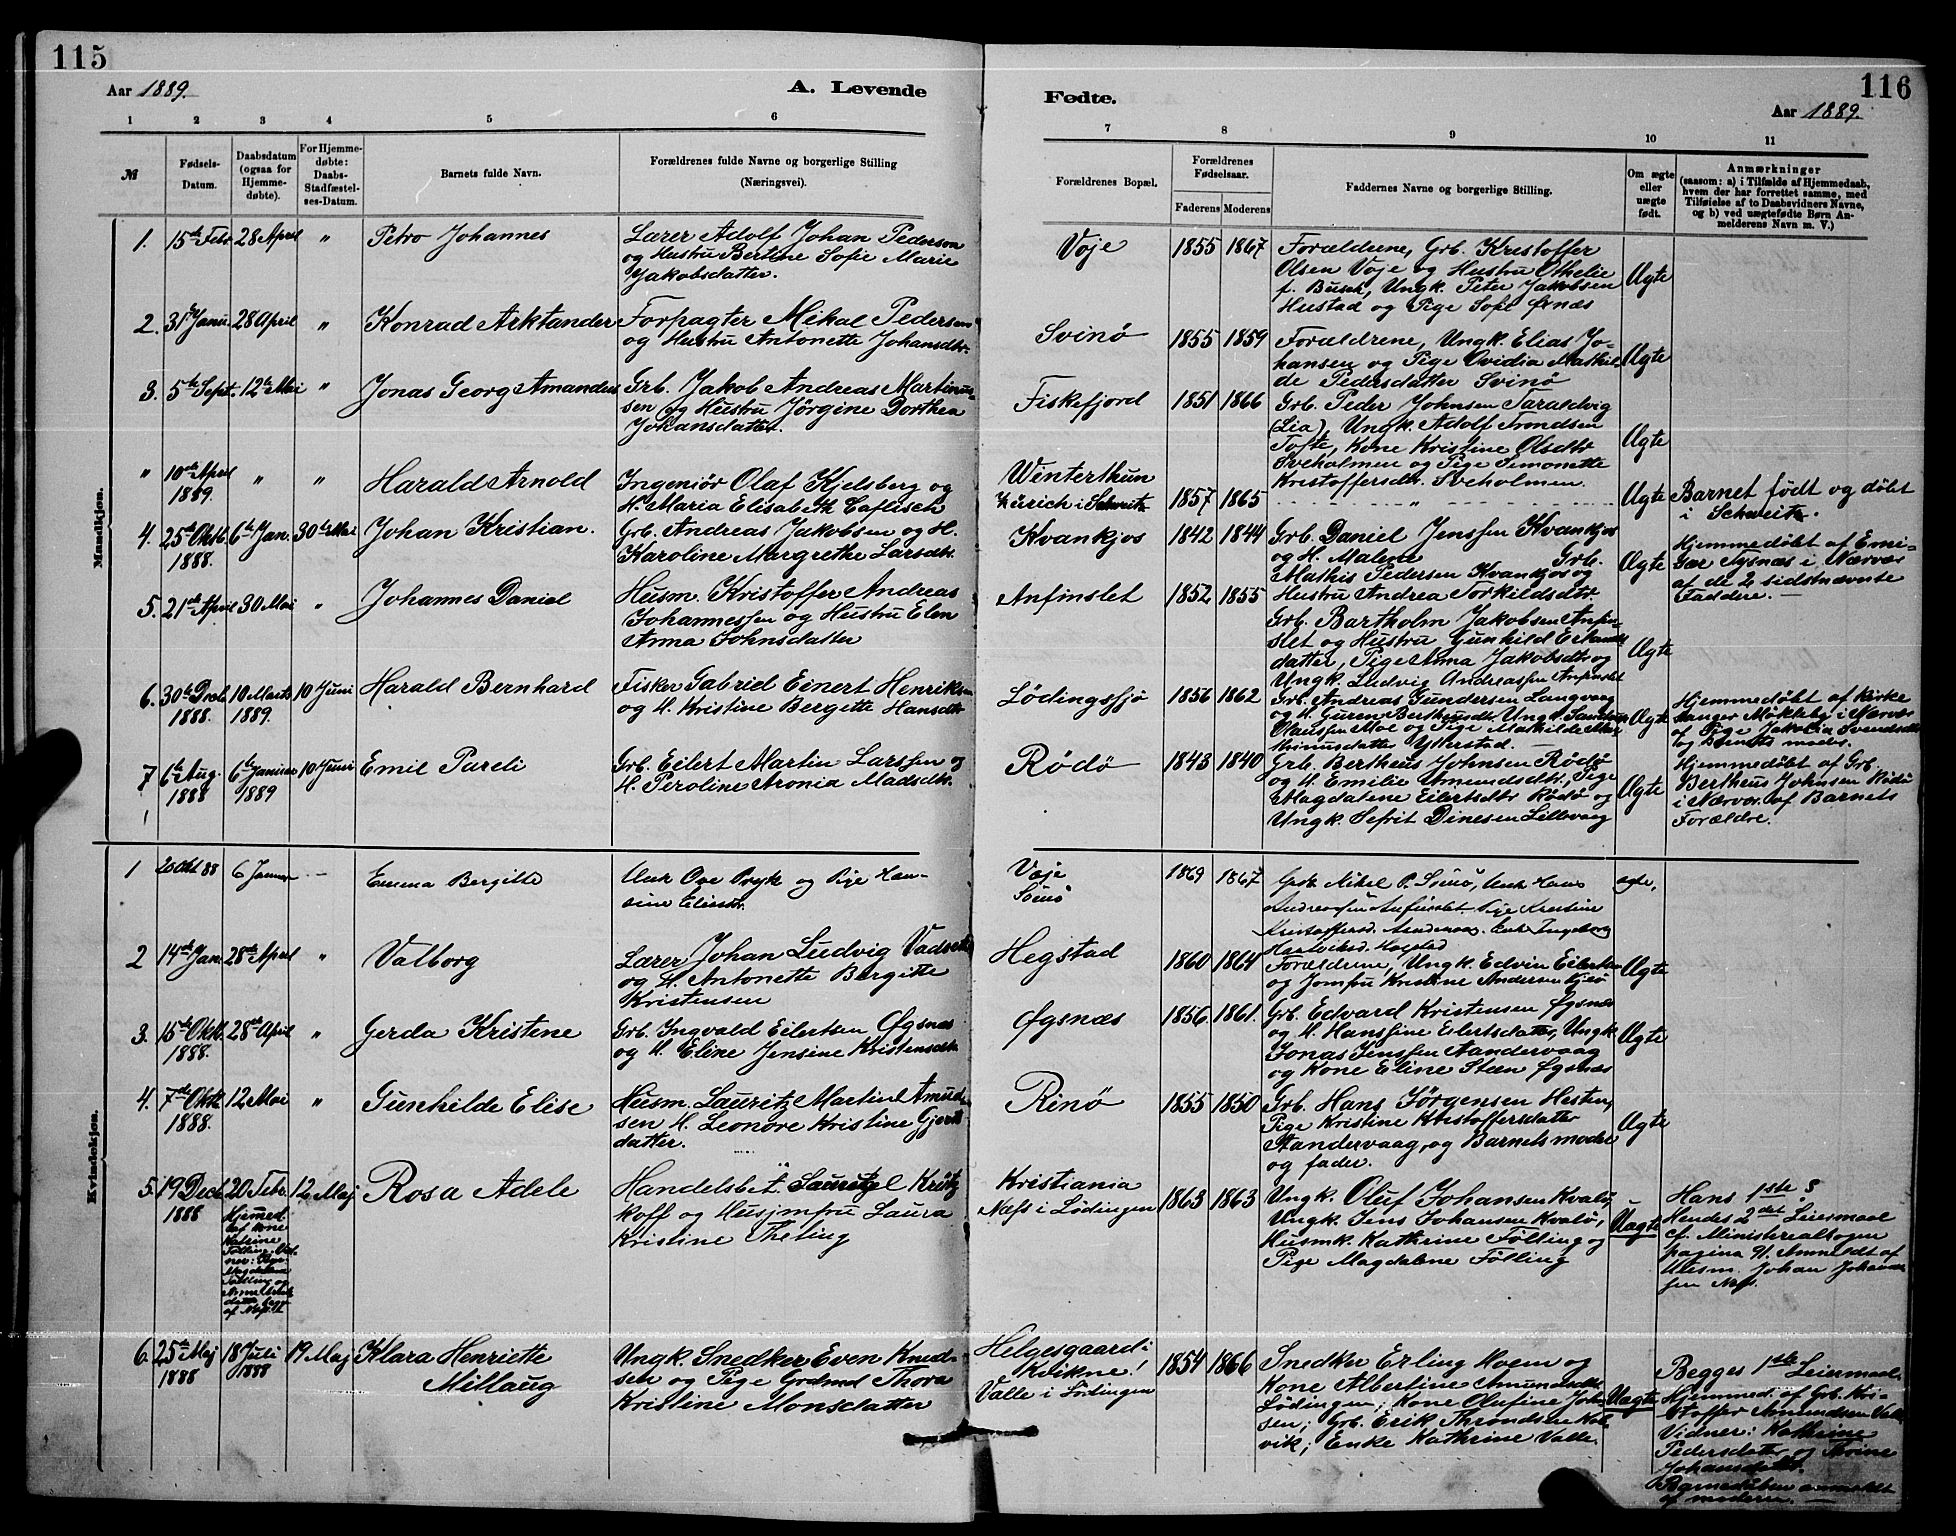 115
Aar 1889.
A. Levende
1 2 3 4 5 6
№
Fødsels-
Datum.
Daabsdatum
(ogsaa for
Hjemme-
døbte).
For Hjemme-
døbte:
Daabs-
Stadfæstel-
ses-Datum.
Barnets fulde Navn.
Forældrenes fulde Navne og borgerlige Stilling
(Næringsvei).
Mandkjøn.
1. 15de Febr 28 April " Petro Johannes
Lærer Adolf Johan Pederson
og Hustru Bertine Sofie Marie
Jakobsdatter.
2. 31te Janu. 28 April " Konrad Arktander
Forpagter Mikal Pedersen
og Hustru Antonette Johansdtr.
3. 5te Sept. 12te Mai " Jonas Georg Amandus
Grb. Jakob Andreas Martinus-
sen og Hustru Jörgine Dorthea
Johansdatter.
" 10de April
1889. " " Harald Arnold
Ingeniör Olaf Kjelsberg og
H. Maria Elisabeth Caflisch
4. 25de Oktb.
1888. 6te Jan. 30te Mai Johan Kristian.
Grb. Andreas Jakobsen og H.
Karoline Margrethe Larsdtr.
5. 21de April 30 Mai " Johannes Daniel
Husm. Kristoffer Andreas
Johannessen og Hustru Elen
Anna Johnsdatter
6. 30te Decb.
1888. 10 Marts
1889. 10 Juni Harald Bernhard
Fisker Gabriel Einert Henriksen
og H. Kristine Bergitte Hansdtr
7 6te Aug.
1888 6te Januar
1889 10 Juni Emil Pareli
Grb. Eilert Martin Larssen og
H. Peroline Aronia Madsdtr.
Kvindekjøn.
1 20 Okt 88 6 Januar — Emma Bergitte
Unk Ove Pryk og Pige Han-
sine Eliasdtr.
2 14de Jan. 28de April " Valborg
Lærer Johan Ludvig
og H. Antonette Bergitte
Kristensen
3. 15de Oktb.
1888. 28de April " Gerda Kristene
Grb. Ingvald Eilertsen Øgsnæs
og H. Eline Jensine Kristensdtr.
4. 7de Oktb.
1888. 12 Mai " Gunhilde Elise
Husm. Lauritz Martin Amund-
sen H. Leonore Kristine Gjerts
datter.
5. 19 Decb
1888 20 Febr. 12 Maj Rosa Adele
Hjemmed.
af Kone
Katrine
Fölling. Vid-
ner: Pige
Magdalena
Fölling og
Handelsbet. Lauritz Krütz-
koff og Husjomfru Laura
Kristine Theting
6. 25de Maj
1888 18 Juli
1888 19 Maj Klara Henriette
Millaug
Ungk. Snedker Even Knud-
sen og Pige Thora
Kristine Monsdatter
116
Fødte.
Aar 1889.
7 8 9 10 11
Forældrenes Bopæl.
Forældrenes
Fødselsaar.
Faderens Moderens
Faddernes Navne og borgerlige Stilling.
Om ægte
eller
uægte
født.
Anmærkninger
(saasom: a) i Tilfælde af Hjemmedaab,
hvem der har forrettet samme, med
Tilføielse af to Daabsvidners Navne,
og b) ved uægtefødte Børn An-
melderens Navn m. V.)
Voje 1855 1867
Forældrene, Grb. Kristoffer
Olsen Voje og Hustru Othelie
f. Busch, Ungk. Peter Jakobsen
Hustad og Pige Sofie
Ægte
Svinö 1855 1859
Forældrene, Ungk. Elias Jo-
hansen og Pige Ovidia Mathil-
de Pedersdatter Svinö
Ægte
Fiskefjord 1851 1866
Grb. Peder Johnsen Taraldvig
(Lia), Ungk. Adolf Trondsen
Tofte, Kone Kristine Olsdtr
Sveholmen og Pige Simonette
Kristoffersdtr. Sveholmen.
Ægte
Winterthun
Zürich i Schweitz 1857 1865 " Ægte
Barnet født og döbt
i Schweitz.
Kvankjos 1842 1844
Grb. Daniel Jenssen Kvankjos
og H. Malene Grb.
Mathis Pedersen Kvankjos og
Hustru Andrea Torkildsdtr.
Ægte
Hjemmedöbt af Emi-
Gær Tysnæs i Nærvær
af de 2 sidstnævnte
Faddere. —
Anfinslet 1852 1855
Grb. Bartholm Jakobsen Anfin-
slet og Hustru Gunhild
datter, Pige Anna Jakobsdtr og
Ungk. Ludvig Andreassen Anfinslet
Ægte
Lödingssjö 1856 1862
Grb. Andreas Gundersen Langvaag
og H. Guren Ungk.
Clausen Moe og Pige Mathilde
datter Ytterstad. —
Ægte
Hjemmedöbt af Kirke
sanger Möklebÿ i Nærvær
af Pige Jakobia Svendsdtr
og Barnets moder.
Rödö 1843 1840
Grb. Bertheus Johnsen Rödö
og H. Emilie Amundsdtr, Pige
Magdalene Eilertsdtr Rödö og
Ungk. Sefrit Dinesen Lillevaag
Ægte
Hjemmedöbt af Grb.
Bertheus Johnsen Rödö
i Nærvær af Barnets
Forældre.
Voje
Svinö 1869 1867
Grdb Mikel P. Svinö, Unk Hans
Andreassen Anfinslet Pige Kristine
Kristoffersd. Enke Ingeborg
Hartviksd.
ægte,
Hegstad 1860 1864
Forældrene, Ungk. Edvin Eilertsen
og Jomfru Kristine Andersen Kjeö
Ægte
Øgsnæs 1856. 1861.
Grb. Edvard Kristensen Øgsnæs
og H. Hanssine Eilertsdatter, Ungk
Jonas Jenssen Sandervaag
og Kone Eline Steen Øgsnæs
Ægte
Rinö 1855 1850
Grb. Hans Jörgensen Hesten,
Pige Kristine Kristoffersdatter
Standervaag, og Barnets moder
og fader.
Ægte
Kristiania
Næss i Lödingen 1863 1863
Ungk. Oluf Johansen Kvalö,
Ungk. Jens Johansen Kvalö,
Husmk. Kathrine Fölling og
Pige Magdalene Fölling
Uægte
Hans 1ste &
Hendes 2det Leiermaal
cf. Ministerialbogen
pagina 91. Anmeldt af
Husm. Johan Johan-
sen Næss.
Helgesgaard i
Kvikne!
Valle i Lödingen 1854 1866
Snedker Erling Hoem og
Kone Albertine Amundsdtr
Lödingen; Kone Olufine Joh-
sen; Grb. Erik Throndsen Kal-
vik; Enke Kathrine Valle.
Uægte
Begges 1ste Leiermaal.
Hjemmed. af Grb. Kri-
stoffer Amundsen Valle
Vidner: Kathrine
Pedersdatter og Trine
Johansdatter.
Barnedåben anmeldt
af moderen. —